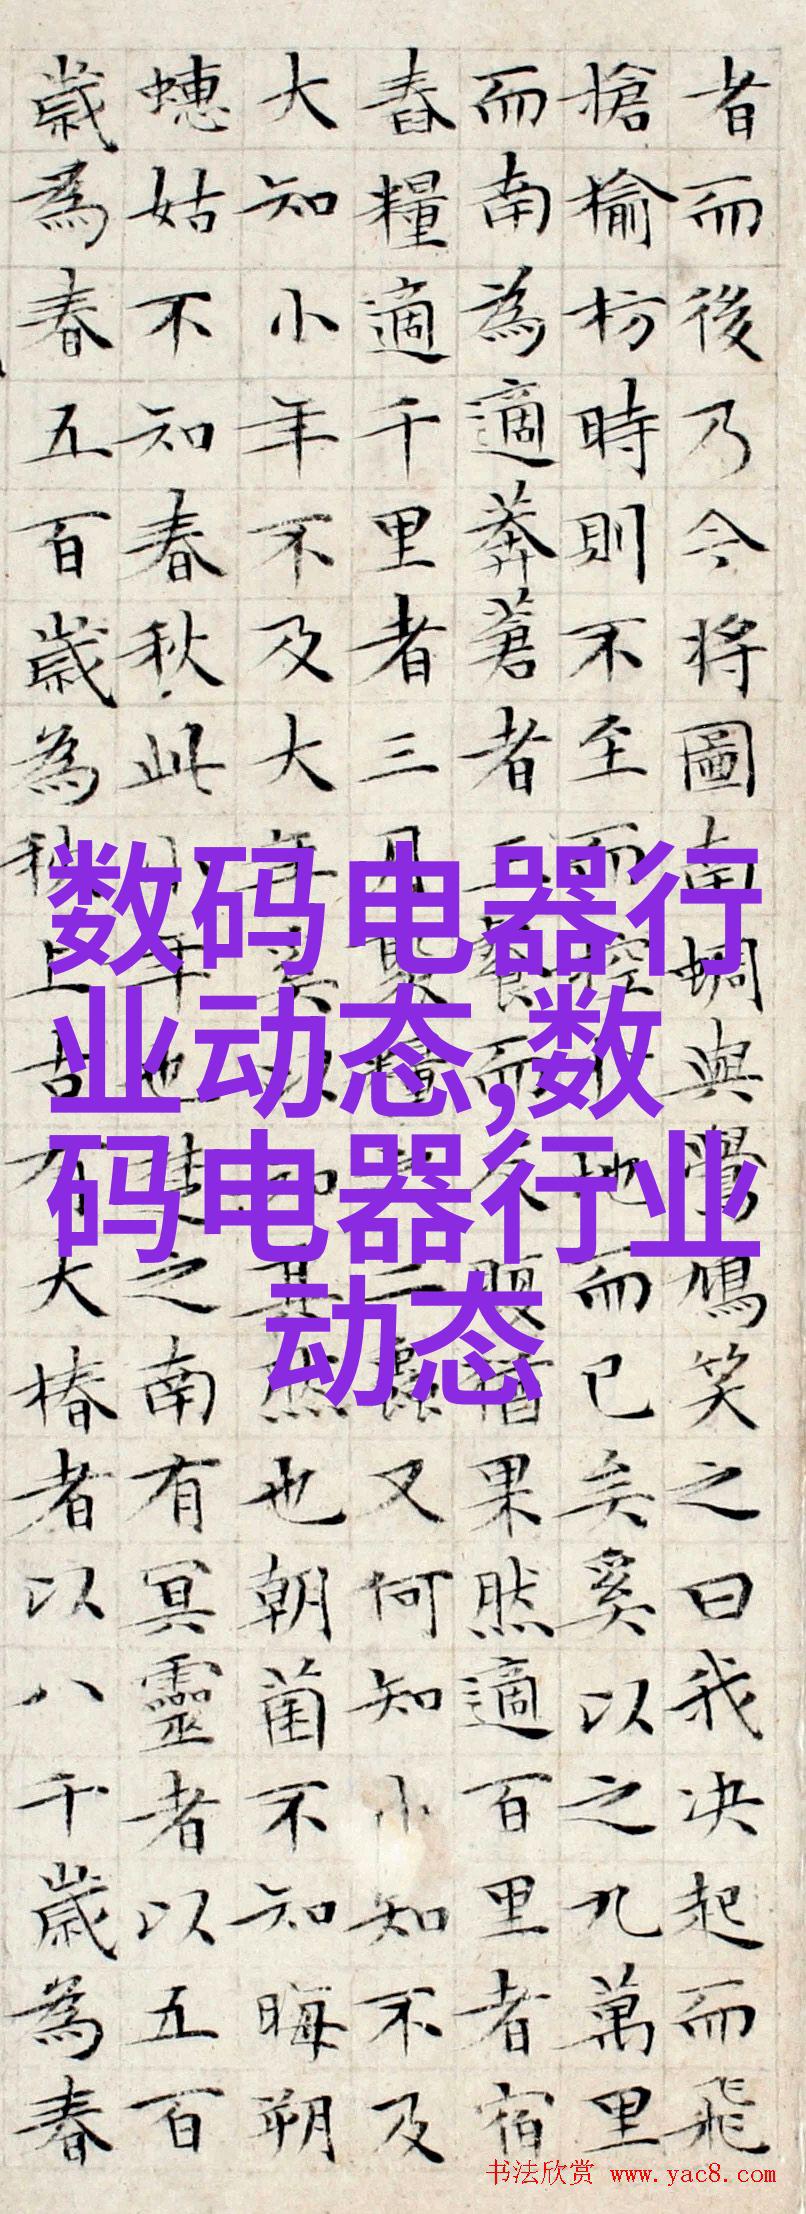 者而後乃今將圖南蜩與鷽鳩笑之曰我决起而飛
搶榆枋時則不至而控地而已矣奚以之九萬里
而南為適莽蒼者三餐而反腹猶果然適百里者宿
舂糧適千里者三月聚糧之二蟲又何知小知不及
大知小年不及大年奚以知其然也朝菌不知晦朔
蟪姑不知春秋此小年也楚之南有冥靈者以五百
歲為春五百歲為秋上古有大椿者以八千歲為春
数码电器行
业动态,数
码电器行业
动态
书法欣赏 www.yac8.com